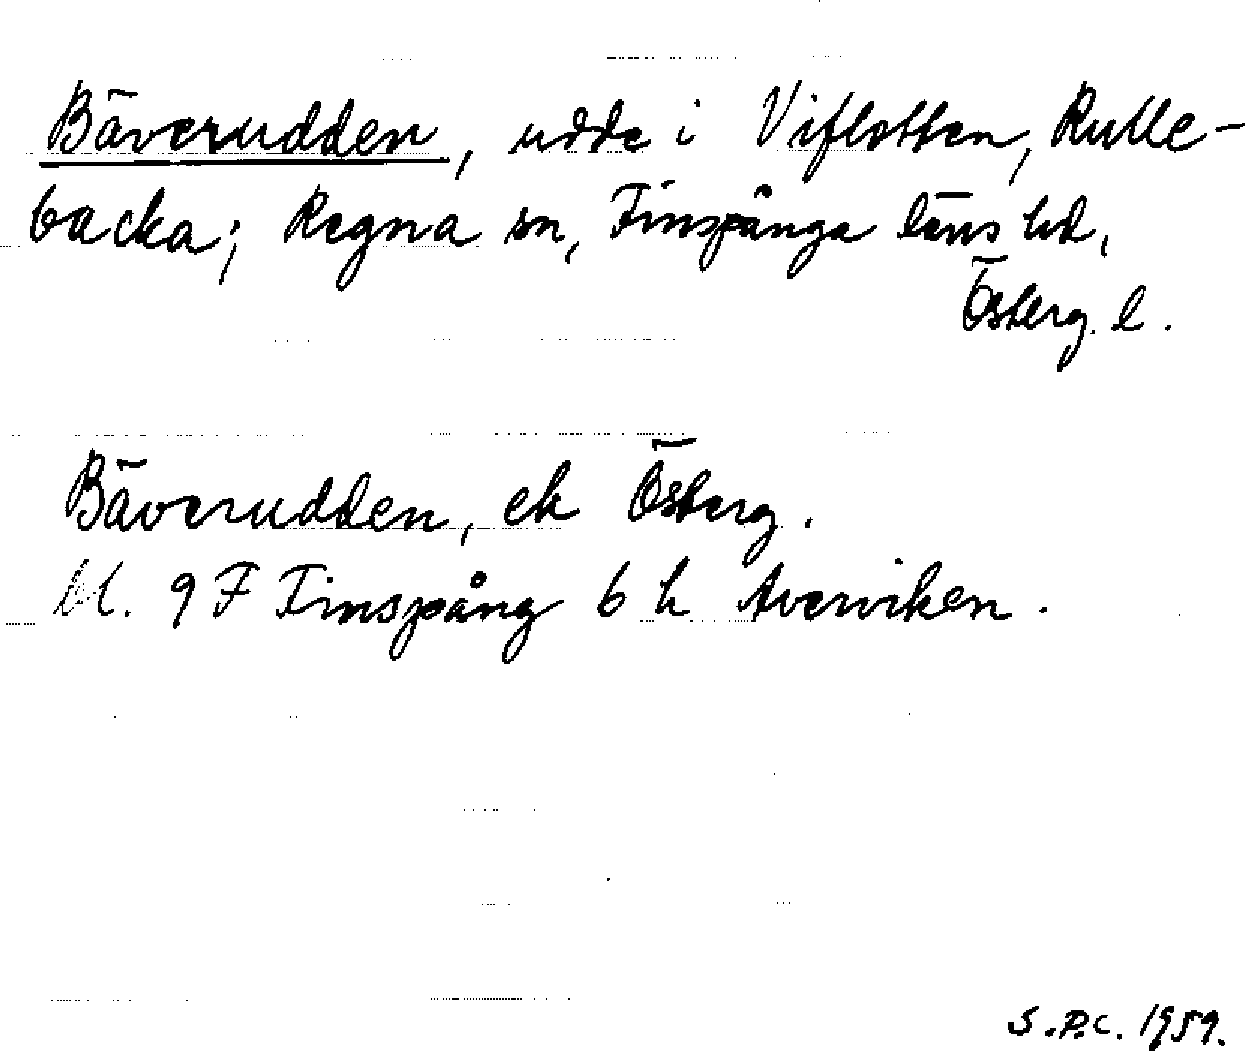 Bäverudden, udde i Viflotten, Rulle-
backa; Regna sn, Finspånga läns hd,
Österg. l.
Bäverudden, ek Österg.
Bl. 9F Finspång 6 h Averviken.
S.P.C. 1959.